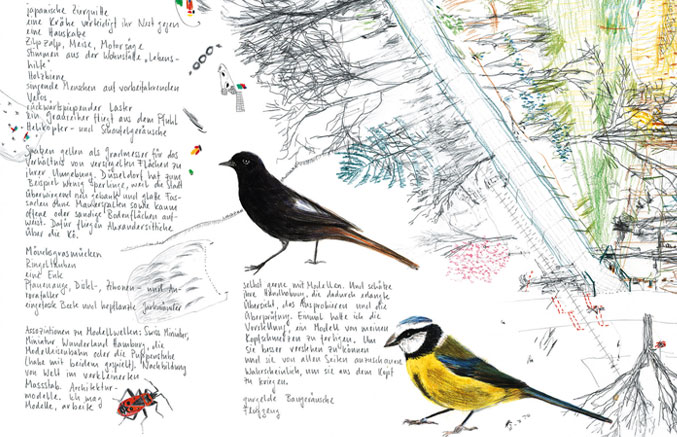 japanische Zierquitte
eine Krähe verteidigt ihr Nest gegen
eine Hauskatze
Zilp Zalp, Meise, Motorsäge
Stimmen aus der Wohnstätte „Lebens-
hilfe"
Holzbiene
singende Menschen auf vorbeifahrenden
Velos
rückwärtspiepender Laster
Ein Graureiher fliegt aus dem Pfuhl
Helikopter- und Schaufelgeräusche
Spatzen gelten als Gradmesser für das
Verhältnis von versiegelten Flächen zu
ihrer Umgebung. Düsseldorf hat zum
Beispiel wenig Sperlinge, weil die Stadt
überwiegend eng gebaut und glatte Fas-
saden ohne Mauerspalten sowie kaum
offene oder sandige Bodenflächen auf-
weist. Dafür fliegen Alexandersittiche
über die Kö.
Mönchsgrasmücken
Ringeltauben
eine Eule
Pfauenauge, Distel-, Zitronen- und Au-
rorafalter
eingefasste Beete und bepflanzte
Assoziationen zu Modellwelten: Swiss Miniatur,
Miniatur Wunderland Hamburg, die
Modelleisenbahn oder die Puppenstube
(habe mit beidem gespielt). Nachbildung
von Welt im verkleinerten
Massstab. Architektur-
modelle. Ich mag
Modelle, arbeite
selbst gerne mit Modellen. Und schätze
ihre Handhabung, die dadurch erlangte
Übersicht, das Ausprobieren und die
Überprüfung. Einmal hatte ich die
Vorstellung, ein Modell von meinen
Kopfschmerzen zu fertigen. Um
sie besser verstehen zu können
und sie von allen Seiten anzuschauen.
Wahrscheinlich, um sie aus dem Kopf
zu kriegen.
gurgelnde Baugeräusche